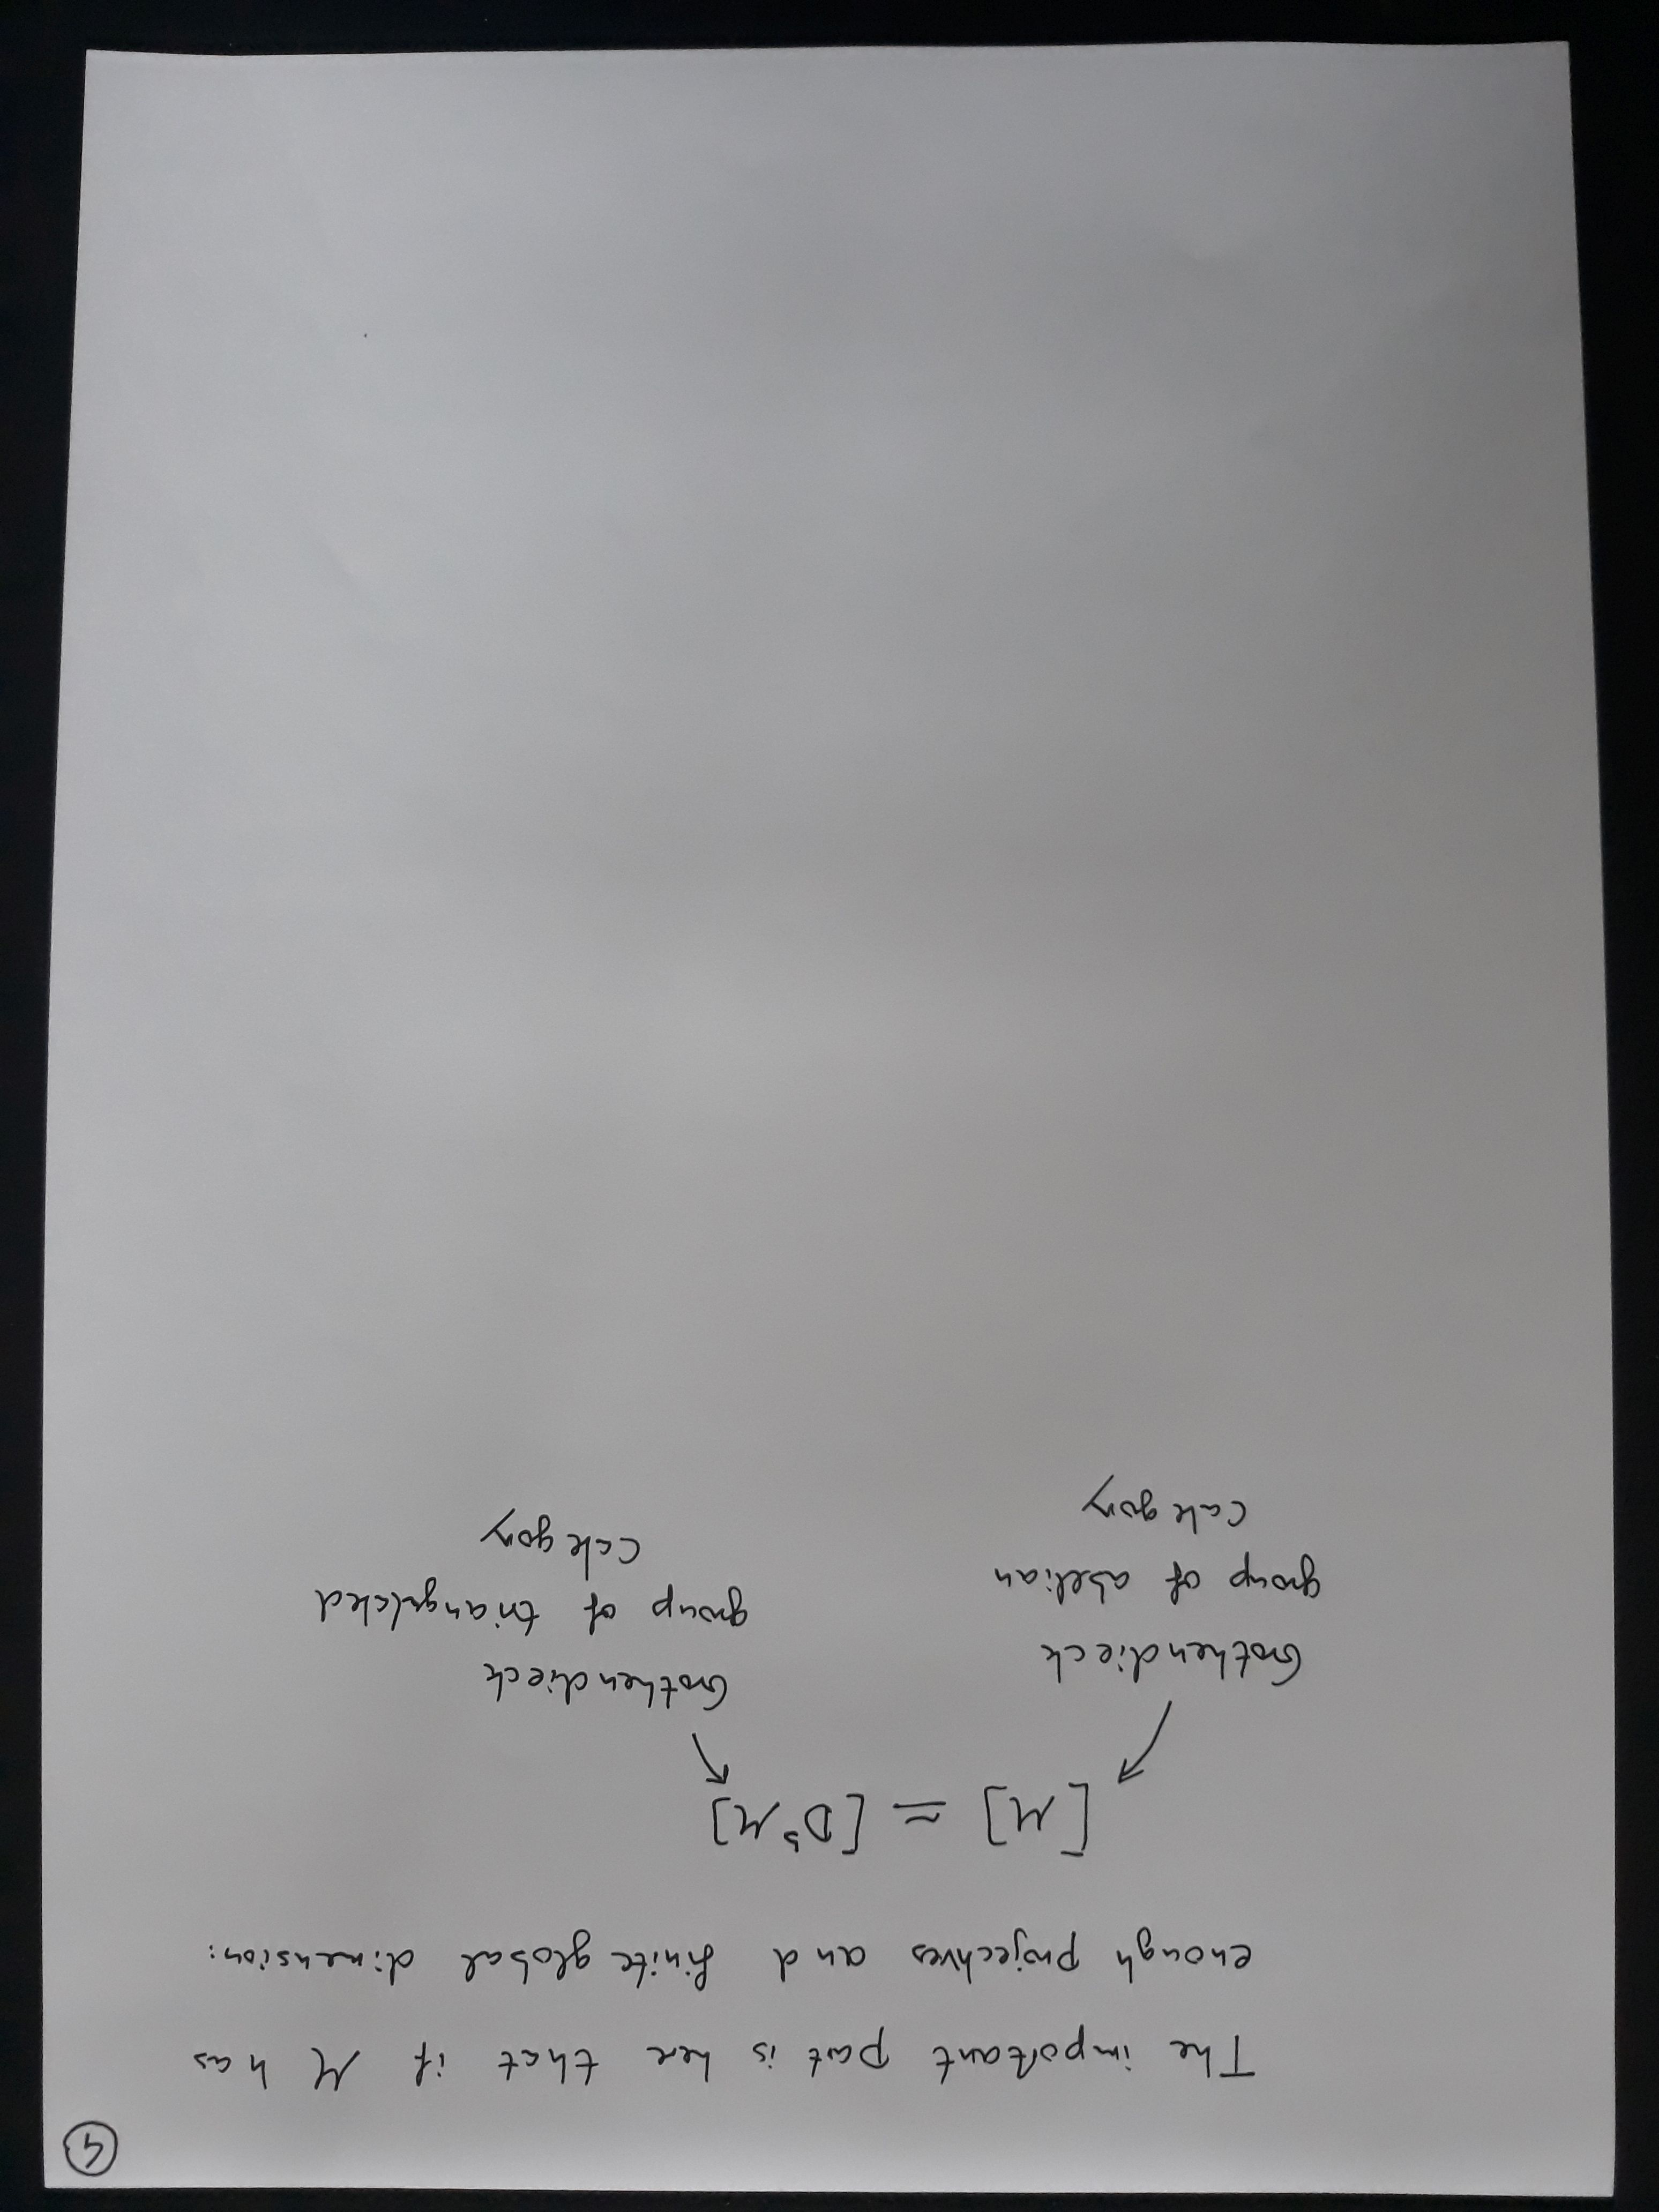 ④
The important part is here that if M has
enough projectives and finite global dimension:
[M] ≃ [DᵇM]
Grothendieck
group of abelian
category
Grothendieck
group of triangulated
category